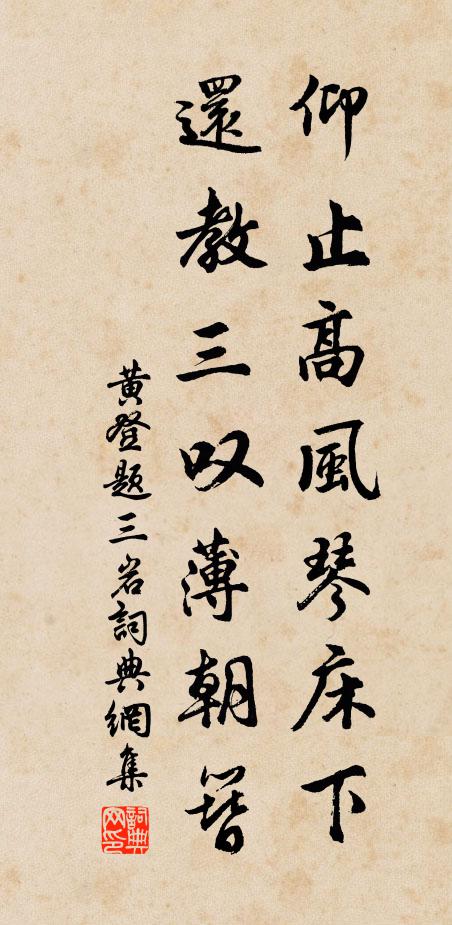 仰止高風琴床下
還教三叹薄朝簪
黄登題三岩詞典網集
詞典网印